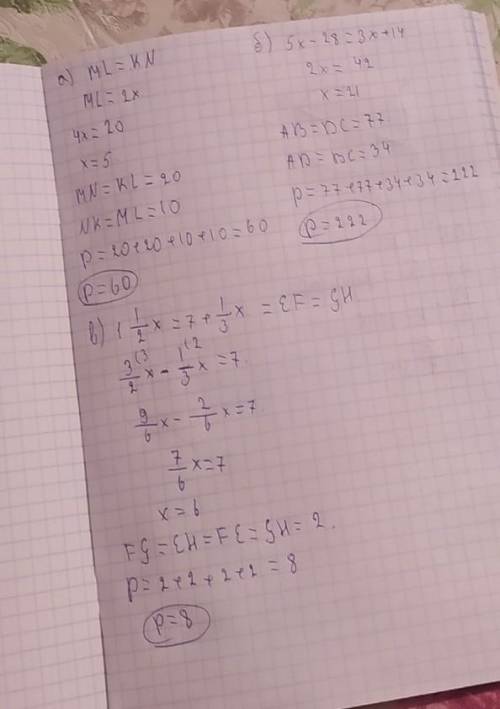 а) ML = KN
ML = 2x
4x = 20
x = 5
MN = KL = 20
NK = ML = 10
P = 20 + 20 + 10 + 10 = 60
P = 60
б) 5x - 28 = 3x + 14
2x = 42
x = 21
AB = DC = 77
AD = BC = 34
P = 77 + 77 + 34 + 34 = 222
P = 222
в) 1 1/2 x = 7 + 1/3 x = EF = GH
3/2 (3 x - 1/3 (2 x = 7.
9/6 x - 2/6 x = 7
7/6 x = 7
x = 6
FG = EH = FE = GH = 2.
P = 2 + 2 + 2 + 2 = 8
P = 8